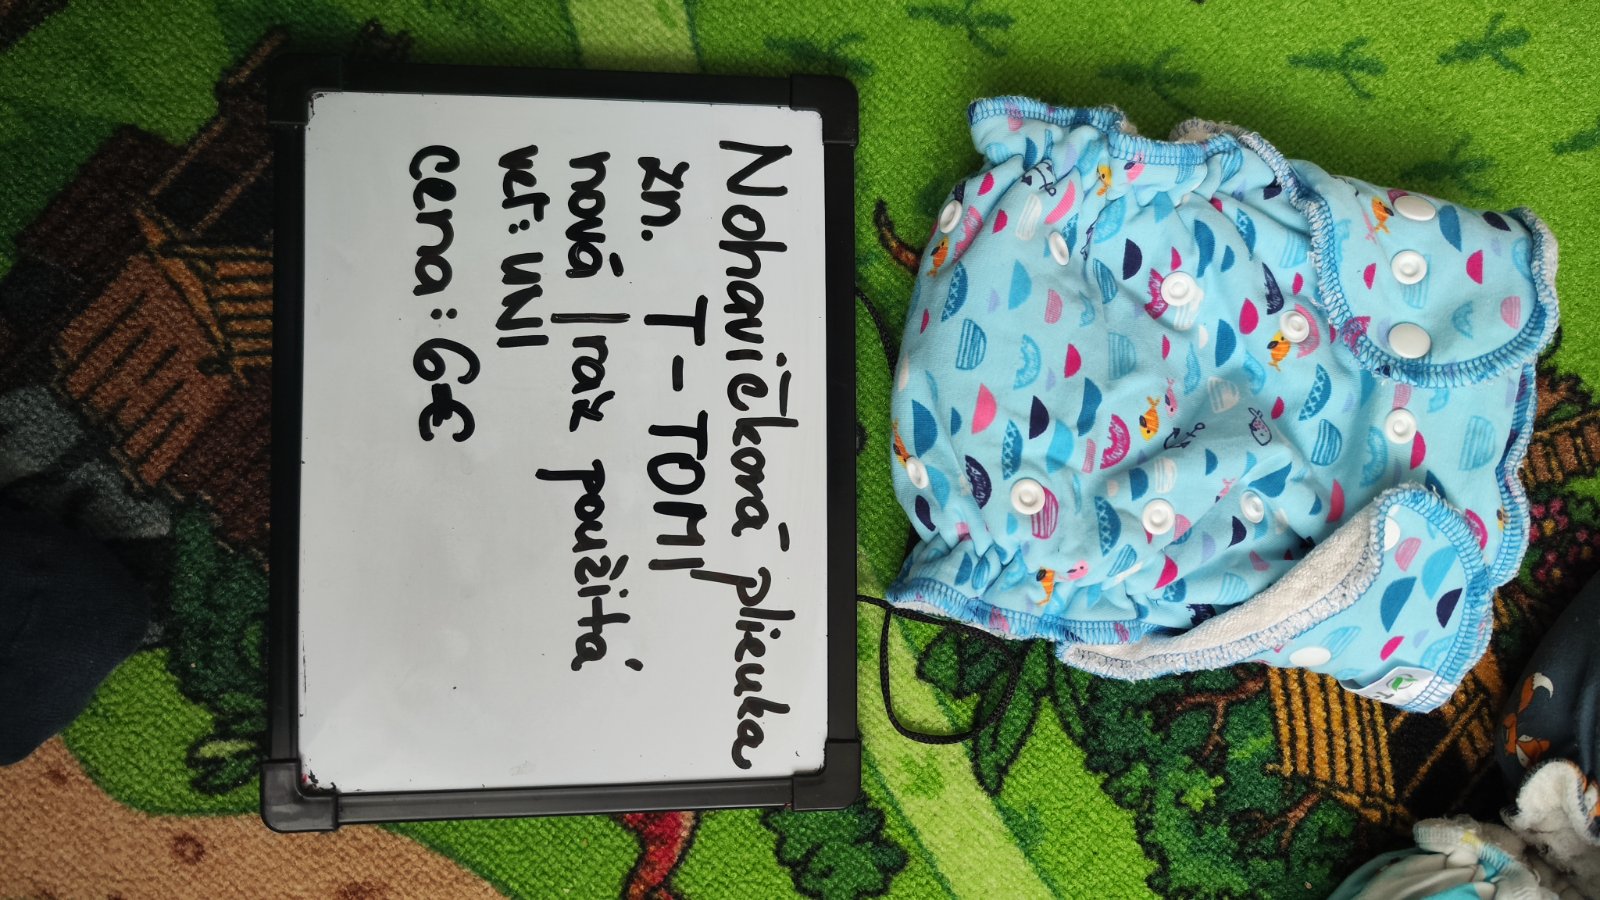 Nohavičková plienka
zn. T-TOMI
nová 1 raz použitá
veľ: UNI
cena: 6€